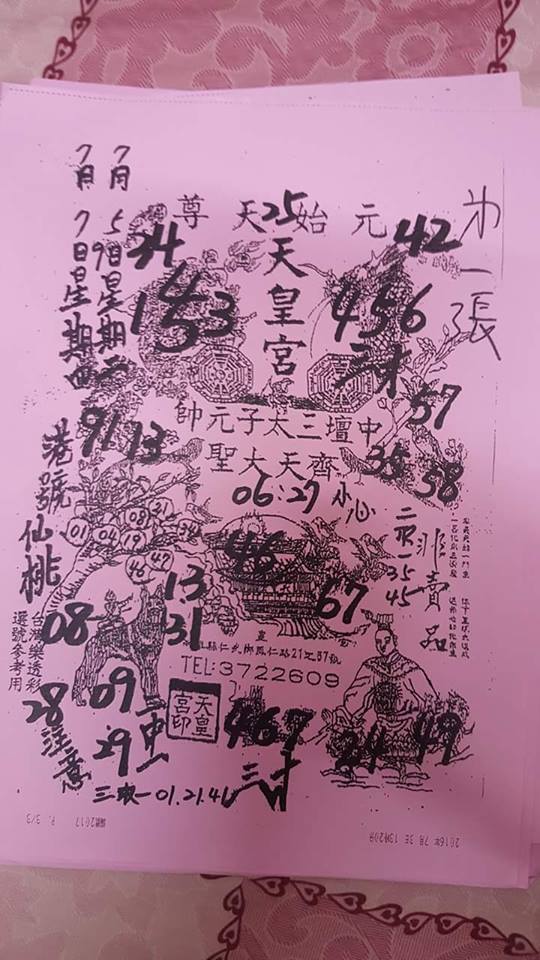 7月7日星期四
7月5日星期二
9
元始天尊
25
34
42
第一張
天皇宮
1453
456
三才
57
91
13
中壇三太子元帥
齊天大聖
35
58
06.27
小心
港號仙桃
01
04
19
08
31
34
46
49
46
二取一35
45
非賣品
13
31
67
08
台灣樂透彩
選號參考用
仁鄉鳳仁路21之87號
TEL:3722609
天皇宮印
28
注意
09
29
二中一
467
三才
24
49
三取一01.21.41
2016年 7月 3日 13時20分
P. 3/3